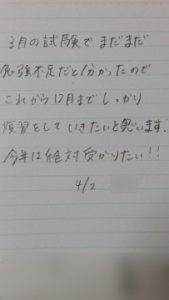 3月の試験で まだまだ
勉強不足だと分かったので
これから12月まで しっかり
復習をして いきたいと思います.
今年は絶対受かりたい!!
4/2